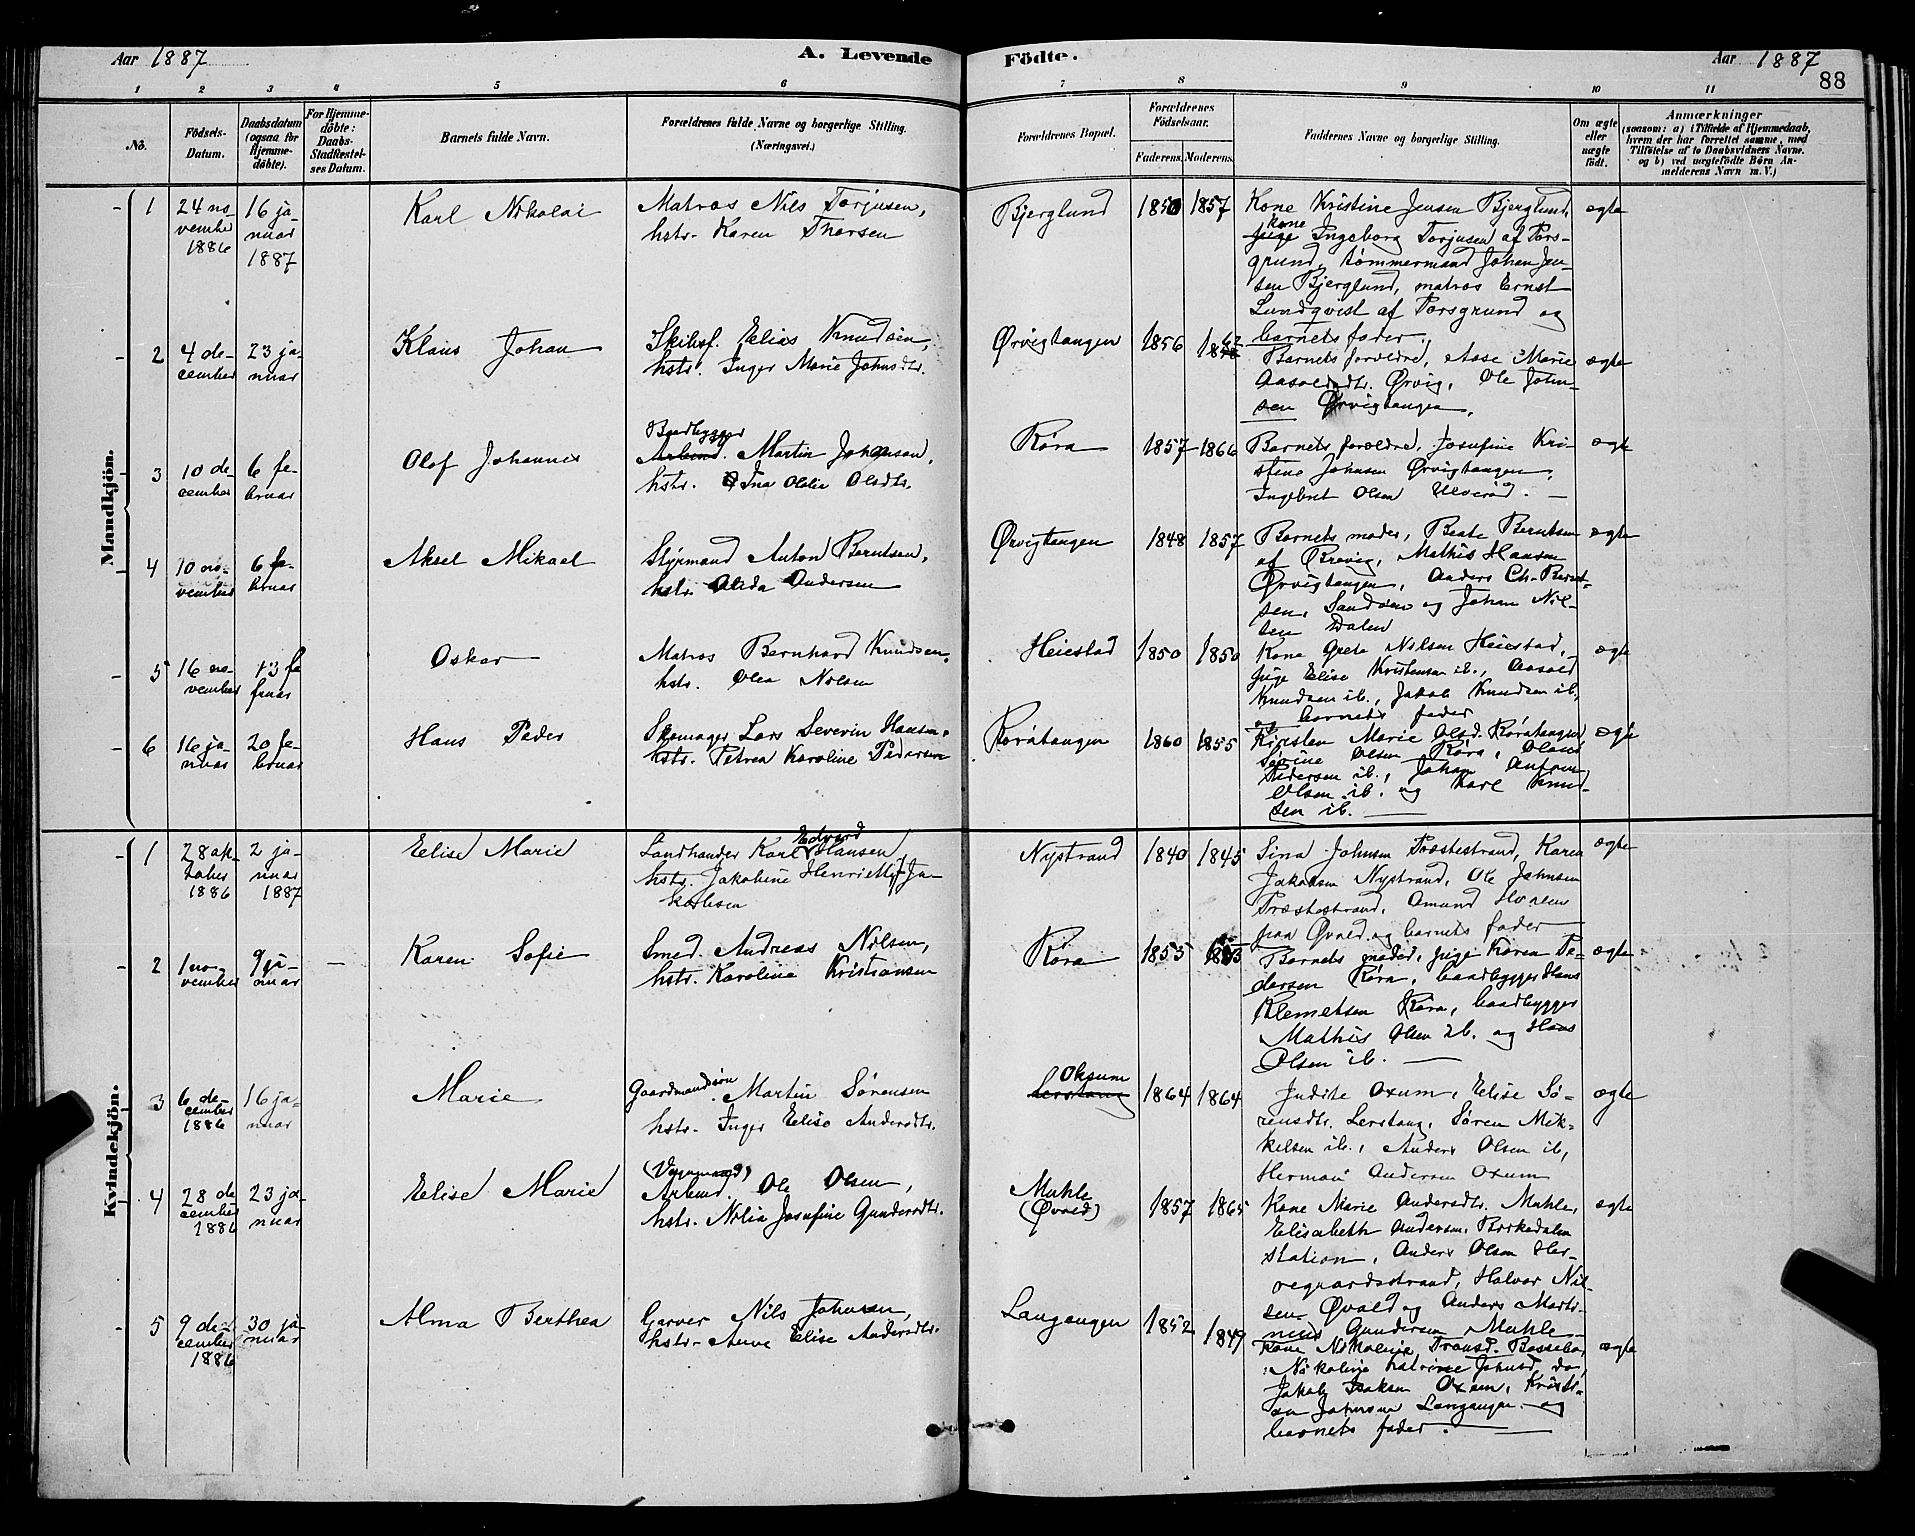 Aar 1887
A. Levende Födte.
Aar 1887
88
1 2 3 4 5 6 7 8 9 10 11
No.
Födsels-Datum.
Daabsdatum (ogsaa for Hjemme-döbte).
For Hjemme-döbte: Daabs-Stadfæstel-ses Datum.
Barnets fulde Navn.
Forældrenes fulde Navne og borgerlige Stilling. (Næringsvei.)
Forældrenes Bopæl.
Forældrenes Födselsaar.
Faderens. Moderens.
Faddernes Navne og borgerlige Stilling.
Om ægte eller uægte födt.
Anmærkninger
(saasom: a) i Tilfælde af Hjemmedaab, hvem der har forrettet samme, med Tilföielse af to Daabsvidners Navne. og b) ved uægtefödte Börn An-melderens Navn m. V.)
Mandkjön.
1
24 no-
vember
1886
16 ja-
nuar
1887
Karl Nikolai
Matros Nils Torjusen,
hstr. Karen Thorsen
Bjerglund
1850 1857
Kone Kristine Jensen Bjerglund,
kone
Ingeborg Torjusen af Pors-
grund, tømmermand Johan Jen-
sen Bjerglund, matros Ernst
Lundqvist af Porsgrund og
barnets fader.
ægte
2
4 de-
cember
23 ja-
nuar
Klaus Johan
Elias Knudsen,
hstr. Inger Marie Johnsdtr.
Ørvigtangen
1856 1862
Barnets forældre, Aase Marie
Ørvig, Ole John-
sen Ørvigtangen,
ægte
3
10 de-
cember
6 fe-
bruar
Olof Johannes
Baadbygger
Arbmd. Martin Johanson,
hstr. Ina Olelia Olsdtr.
Røra
1857 1866
Barnets forældre, Josefine Kri-
stine Johnsen Ørvigtangen,
Ingebret Olsen
ægte
4
10 no-
vember
6 fe-
bruar
Aksel Mikael
Styrmand Anton Berntsen,
hstr. Olida Andersen
Ørvigtangen
1848 1857
Barnets moder, Beate Berntsen
af Brevig, Mathis Hansen
Ørvigtangen, Anders Ch. Bernt-
sen, Sandøen og Johan Nil-
sen Dalen
ægte
5
16 no-
vember
13 fe
bruar
Oskar
Matros Bernhard Knudsen,
hstr. Olea Nilsen
Heiestad
1850 1850
Kone Grete Nilsen Heiestad,
pige Elise Kristensen ib., Aasold
Knudsen ib., Jakob Knudsen ib.
og barnets fader
ægte
6
16 ja
nuar
20 fe-
bruar
Hans Peder
Skomager Lars Severin Hansen,
hstr. Petrea Karoline Pedersen
Røratangen
1860 1855
Kirsten Marie Olsd. Røratangen
Sørine Olsen Røra,
Pedersen ib., Johan Anton
Olsen ib. og Karl Knud-
sen ib.
ægte
Kvindekjön.
1
28 ok-
tober
1886
2 ja-
nuar
1887
Elise Marie
Edvard
Landhandler Karl Hansen
hstr. Jakobine Henriette Ja-
kobsen
Nystrand
1840 1845
Sina Johnsen Præstestrand, Karen
Jakobsen Nystrand, Ole Johnsen
Præstestrand, Amund
paa Øvald og barnets fader
ægte
2
1 no-
vember
9 ja-
nuar
—
Karen Sofie
Smed Andreas Nilsen,
hstr. Karoline Kristiansen
Røra
1853
Barnets moder, pige Karen Pe-
dersen Røra, baadbygger Hans
Klemetsen Røra, baadbygger
Mathis Olsen ib. og Hans
Olsen ib.
ægte
3
6 de-
cember
1886
16 ja-
nuar
Marie
Gaardmandssøn Martin Sørensen
hstr. Inger Elise Andersdtr.
Oksum
Lerstang
1864 1864
Judite Oxum, Elise Sø-
rensdtr. Lerstang, Søren Mik-
kelsen ib., Anders Olsen ib,
Herman Andersen Oxum
ægte
4
28 de
cember
1886
23 ja-
nuar
Elise Marie
Arbmd. Ole Olsen,
hstr. Nilia Josefine Gundersdtr.
Muhle
(Øvald)
1857 1865
Kone Marie Andersdtr. Muhle,
Elisabeth Andersen, Birkedalen
station, Anders Olsen Her-
regaardsstrand, Halvor Nil-
sen Øvald og Anders Marti-
nius Gundersen Muhle
ægte
5
9 de-
cember
1886
30 ja-
nuar
Alma Berthea
Garver Nils Johnsen,
hstr. Anne Elise Andersdtr.
Langangen
1852 1849
Kone Nikoline
Nikoline Katrine Johnsd. do,
Jakob Isaksen Oxum, Kristi-
an Johnsen Langangen og
barnets fader.
ægte